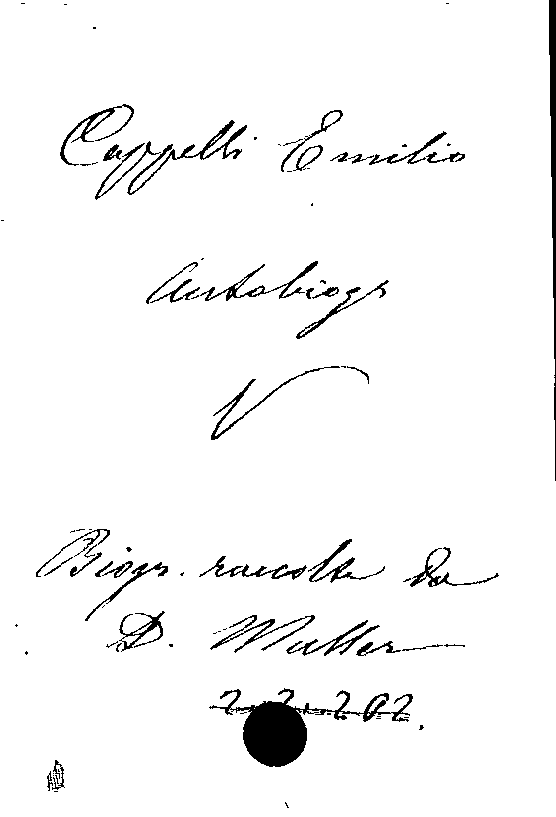 Cappelli Emilio
Autobiogr
V
Biogr. raccolte da
D. Muller
2.2.202.